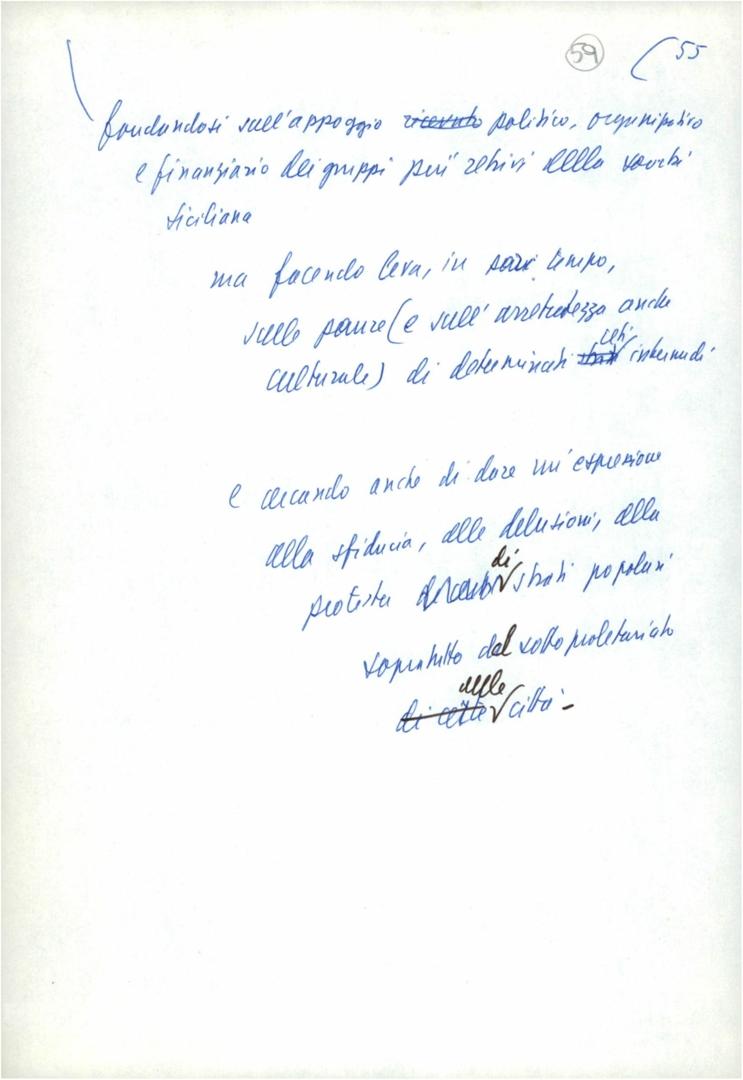 59 (55
fondandosi sull'appoggio ricevuto politico, organizzativo
e finanziario dei gruppi più retrivi della società
siciliana
ma facendo leva, in pari tempo,
sulle paure (e sull'arretratezza anche
culturale) di determinati ceti intermedi
e cercando anche di dare un'espressione
alla sfiducia, alle delusioni, alla
protesta di strati popolari
sopratutto del sottoproletariato
di certe delle città -